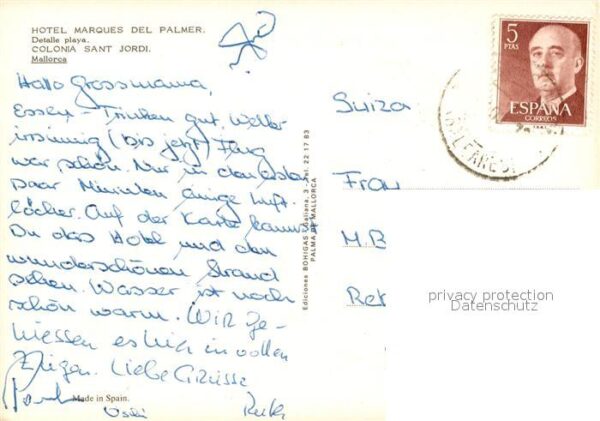 HOTEL MARQUES DEL PALMER.
Detalle playa.
COLONIA SANT JORDI.
Mallorca
Hallo Grossmama,
Essen - Trinken gut, Wetter
irrsinnig (bis jetzt) Flug
war schön. Nur in den ersten
paar Minuten einige Luft-
löcher. Auf der Karte kannst
Du das Hotel und den
wunderschönen Strand
sehen. Wasser ist noch
schön warm. Wir ge-
niessen es hier in vollen
Zügen. Liebe Grüsse
Ruth
Made in Spain.
Ediciones BOHIGAS - Galiana, 3 - Tel. 22 17 83
PALMA DE MALLORCA
5
PTAS
ESPAÑA
CORREOS
Suiza
Frau
M.B
privacy protection
Datenschutz